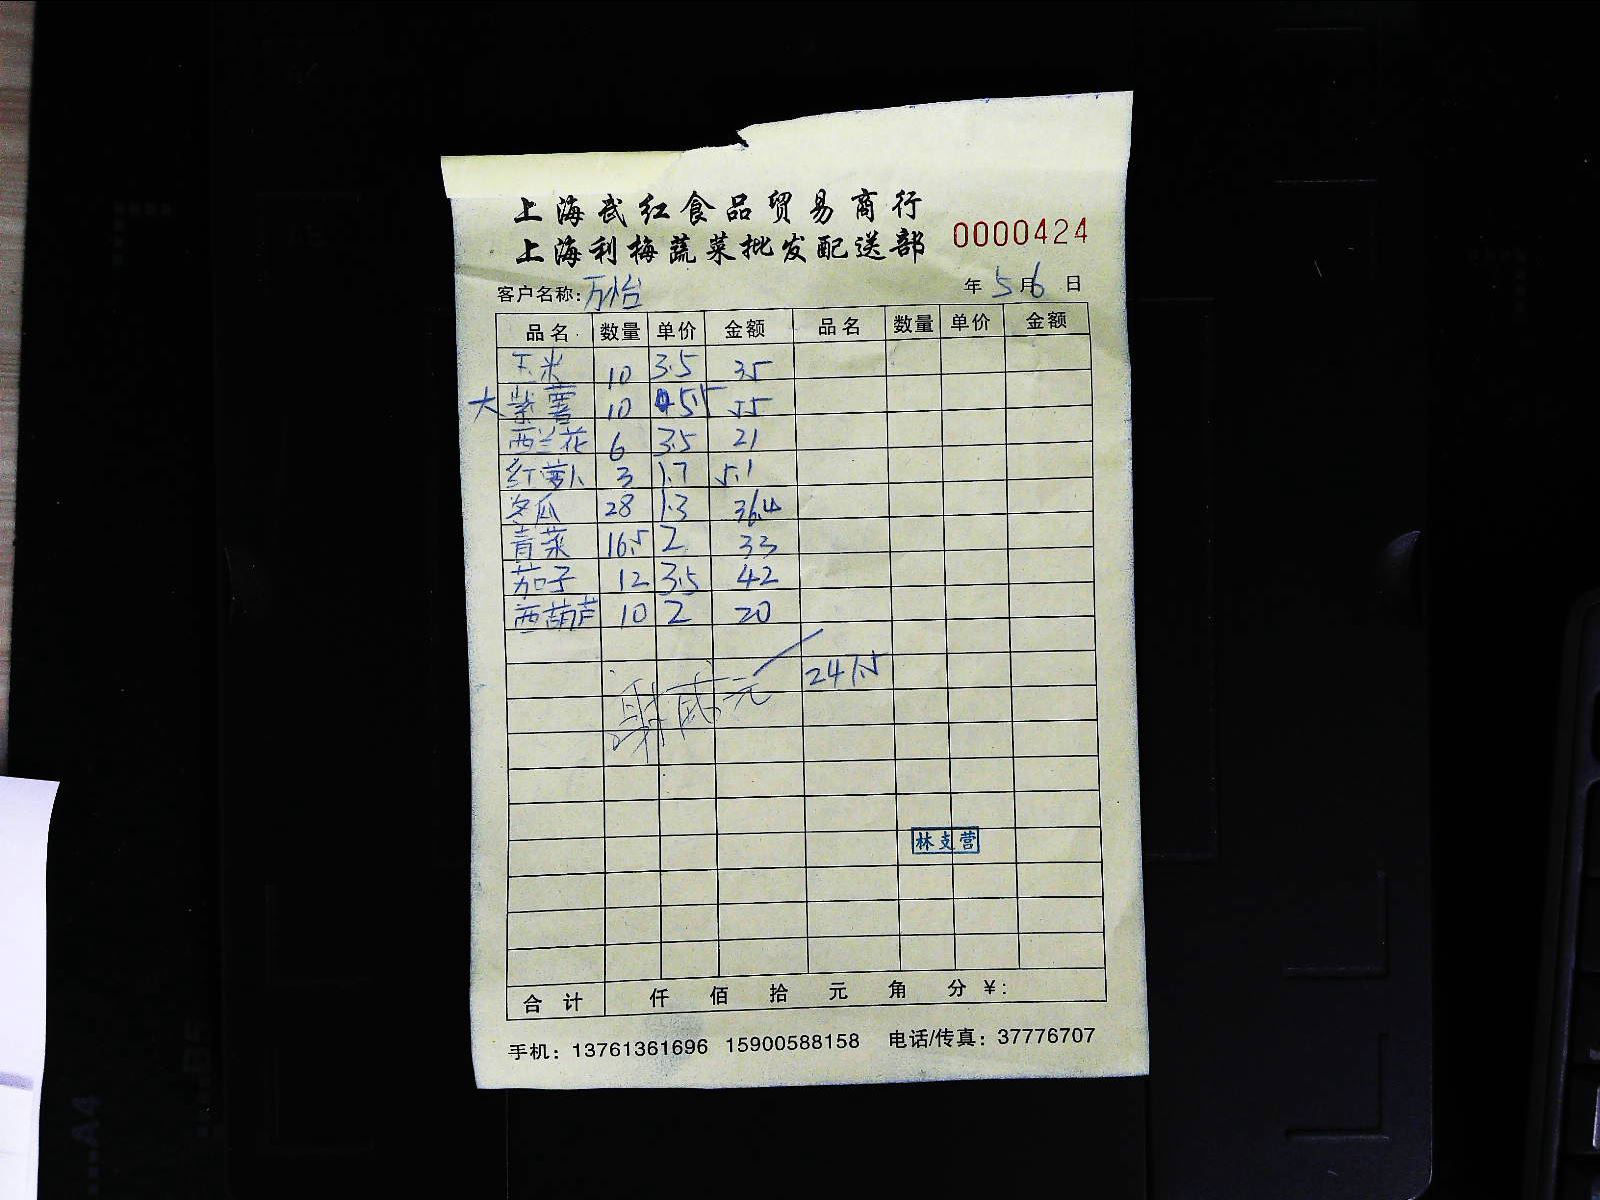 上海武红食品贸易商行
上海利梅蔬菜批发配送部 0000424
客户名称：万怡 年 5 月 6 日
品名 数量 单价 金额 品名 数量 单价 金额
玉米 10 3.5 35
大紫薯 10 5.5 55
西兰花 6 3.5 21
红萝卜 3 1.7 5.1
冬瓜 28 1.3 36.4
青菜 16.5 2 33
茄子 12 3.5 42
西葫芦 10 2 20
247.5
林支营
合计 仟 佰 拾 元 角 分 ¥：
手机：13761361696 15900588158 电话/传真：37776707
A4